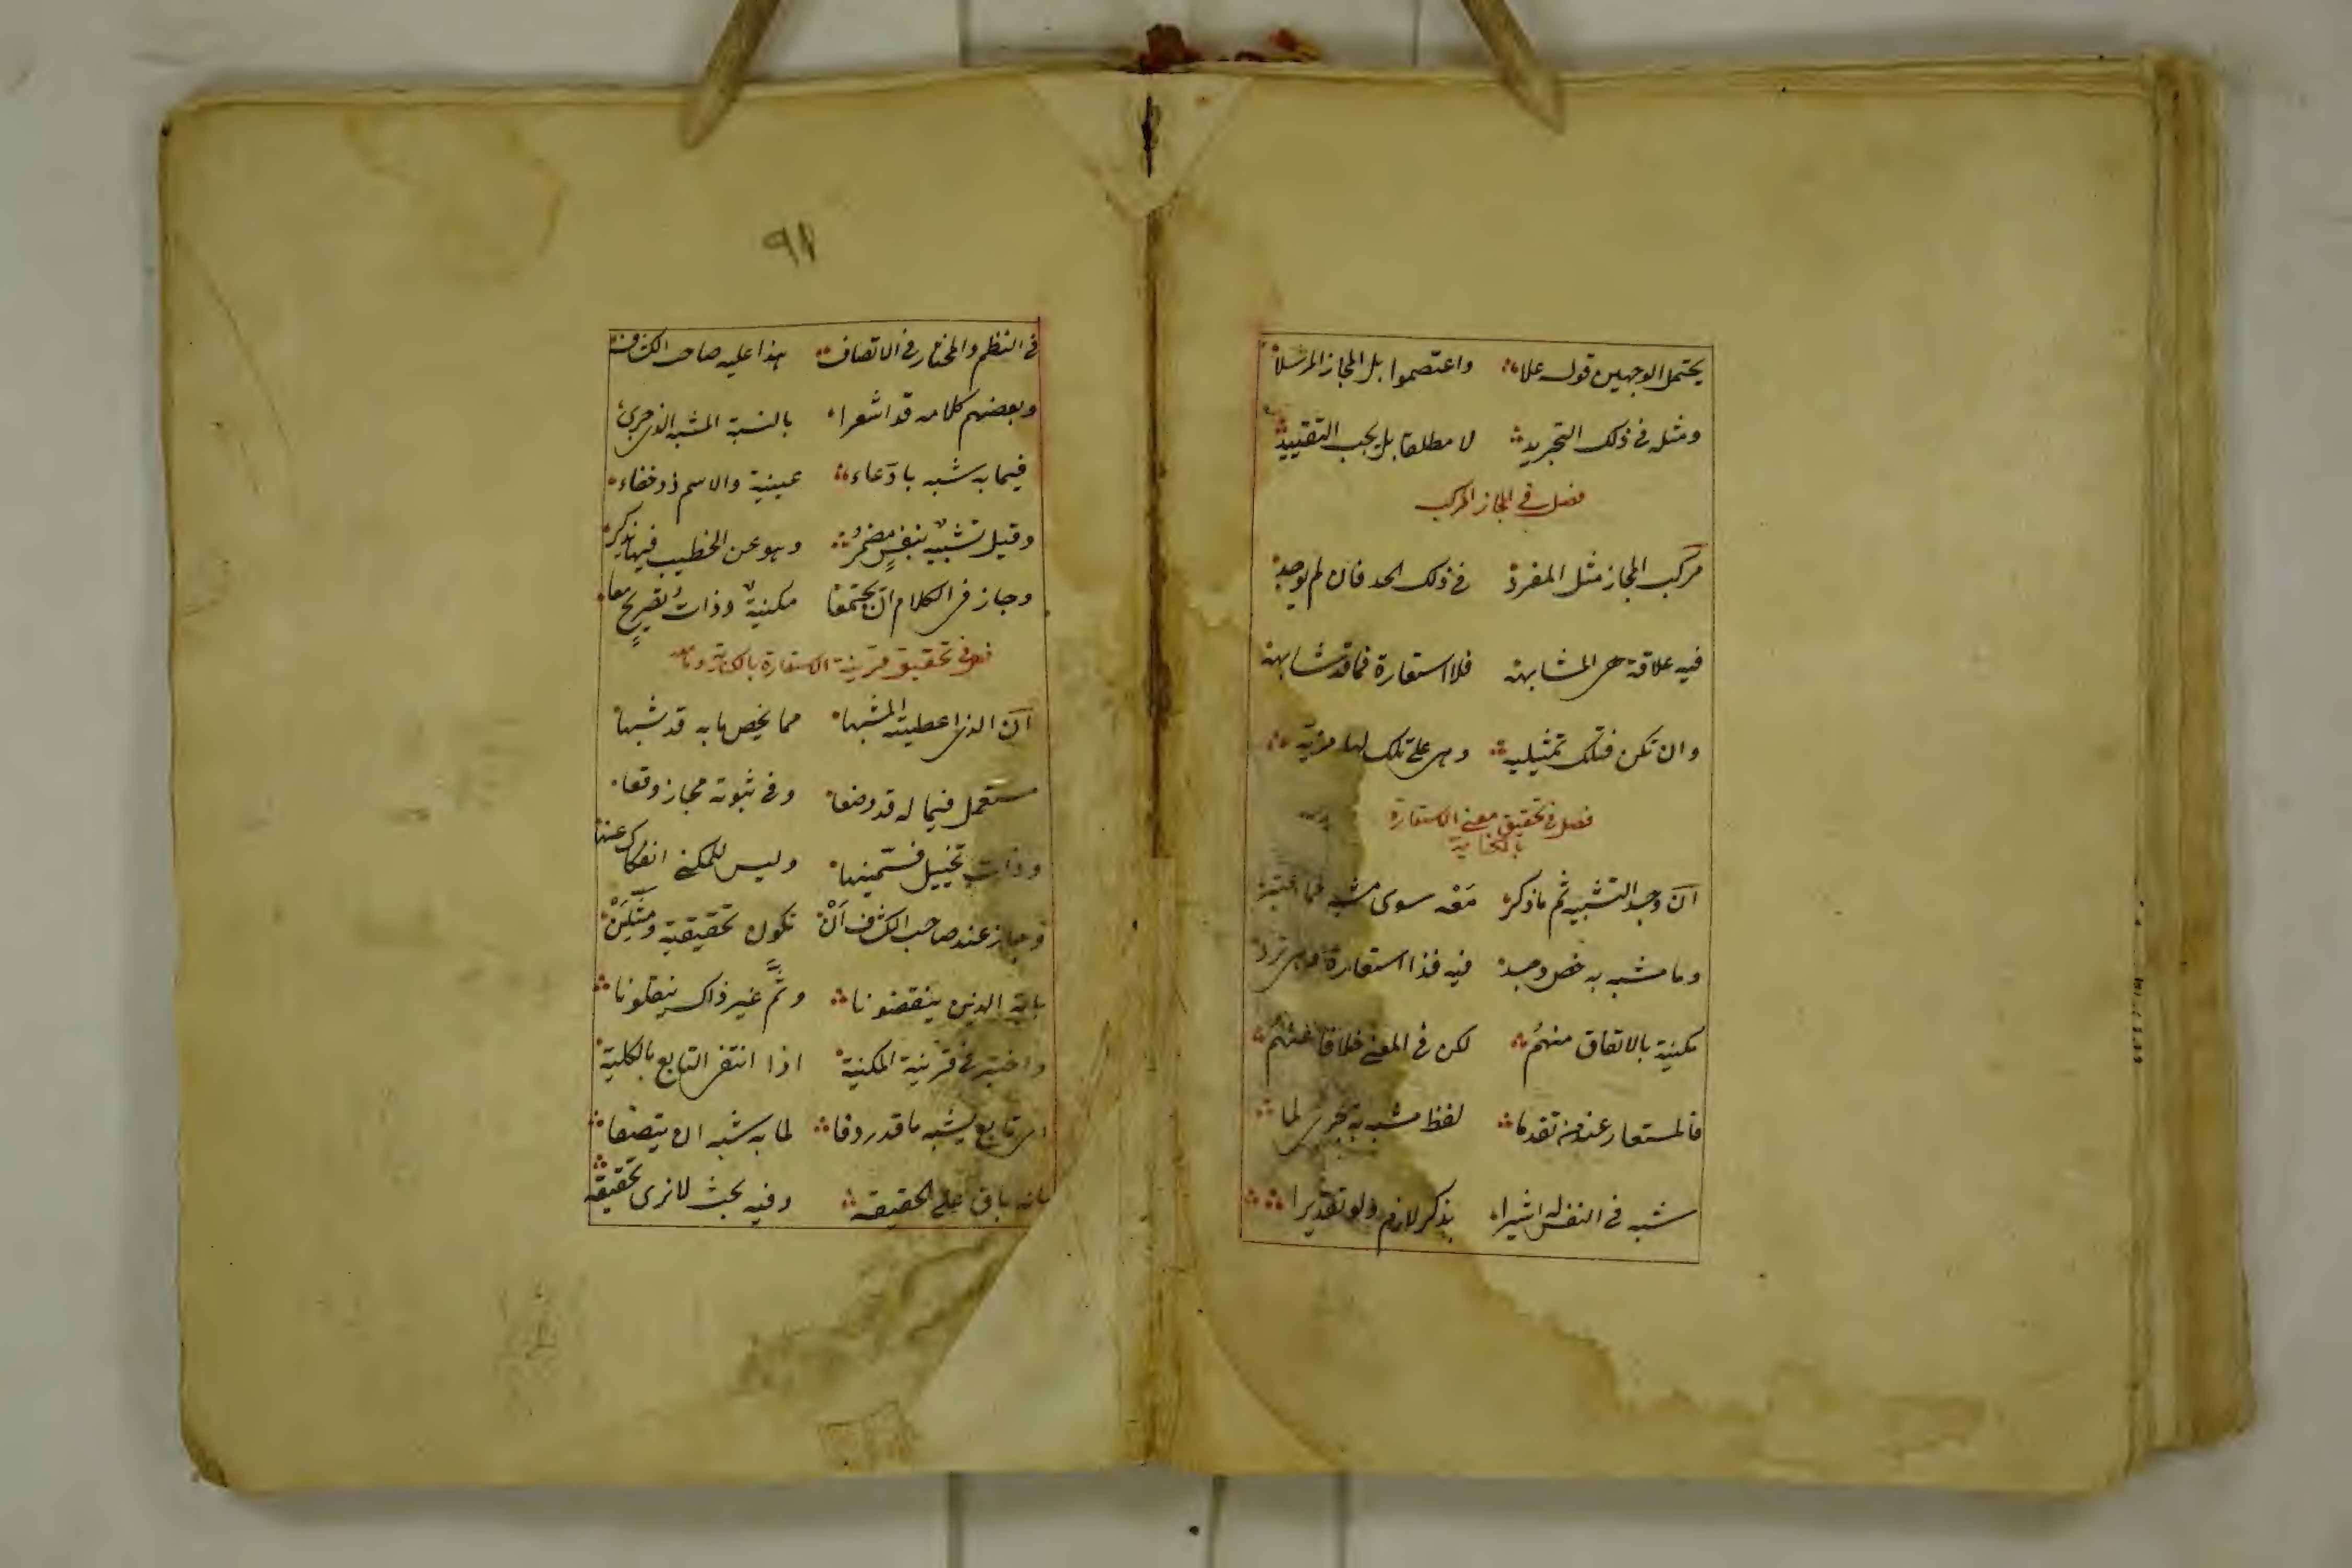 يحتمل الوجهين قوله علا واعتصموا بل المجاز المرسلا
ومثله في ذلك التجريد لا مطلقا بل يجب التقييد
فصل في المجاز المركب
مركب المجاز مثل المفرد في ذلك الحد فان لم يوجد
فيه علاقة هي المشابهة فلا استعارة فما قد شابهه
وان تكن فتلك تمثيلية وهي على تلك لها مزية
فصل في تحقيق معنى الاستعارة
بالكناية
ان وجد التشبيه ثم ما ذكر معه سوى مشبه
وما مشبه به خص وجد فيه فذا استعارة وهي ترد
مكنية بالاتفاق منهم لكن في المعنى خلافا عنهم
فالمستعار عند من تقدما لفظ مشبه به لما
شبه في النفس له اشيرا بذكر لازم ولو تقديرا
٩١
في النظم والمختار في الاتصاف هذا عليه صاحب الكشاف
وبعضهم كلامه قد اشعرا بالنسبة المشبه الذي جرى
فيما به شبه بادّعاء عينية والاسم ذو خفاء
وقيل تشبيهٌ بنفسٍ مضمرُ وهو عن الخطيب فيها يذكر
وجاز في الكلام ان يجتمعا مكنيةٌ وذاتُ تصريحٍ معا
فصل في تحقيق قرينة الاستعارة بالكناية
ان الذي اعطيته المشبها مما يخص ما به قد شبها
مستعمل فيما له قد وضعا وفي ثبوته مجاز وقعا
وذات تخييل فسمينها وليس للمكني انفكاك عنها
وجاز عند صاحب الكشاف أن تكون تحقيقية
باية الذين ينقضونا وثَمَّ غير ذاك ينقلونا
واختير في قرينة المكنية اذا انتفى التابع بالكلية
اي تابع يشبه ما قد ردفا لما به شبه ان يتصفا
بانه باق على الحقيقه وفيه بحث لا نرى تحقيقه